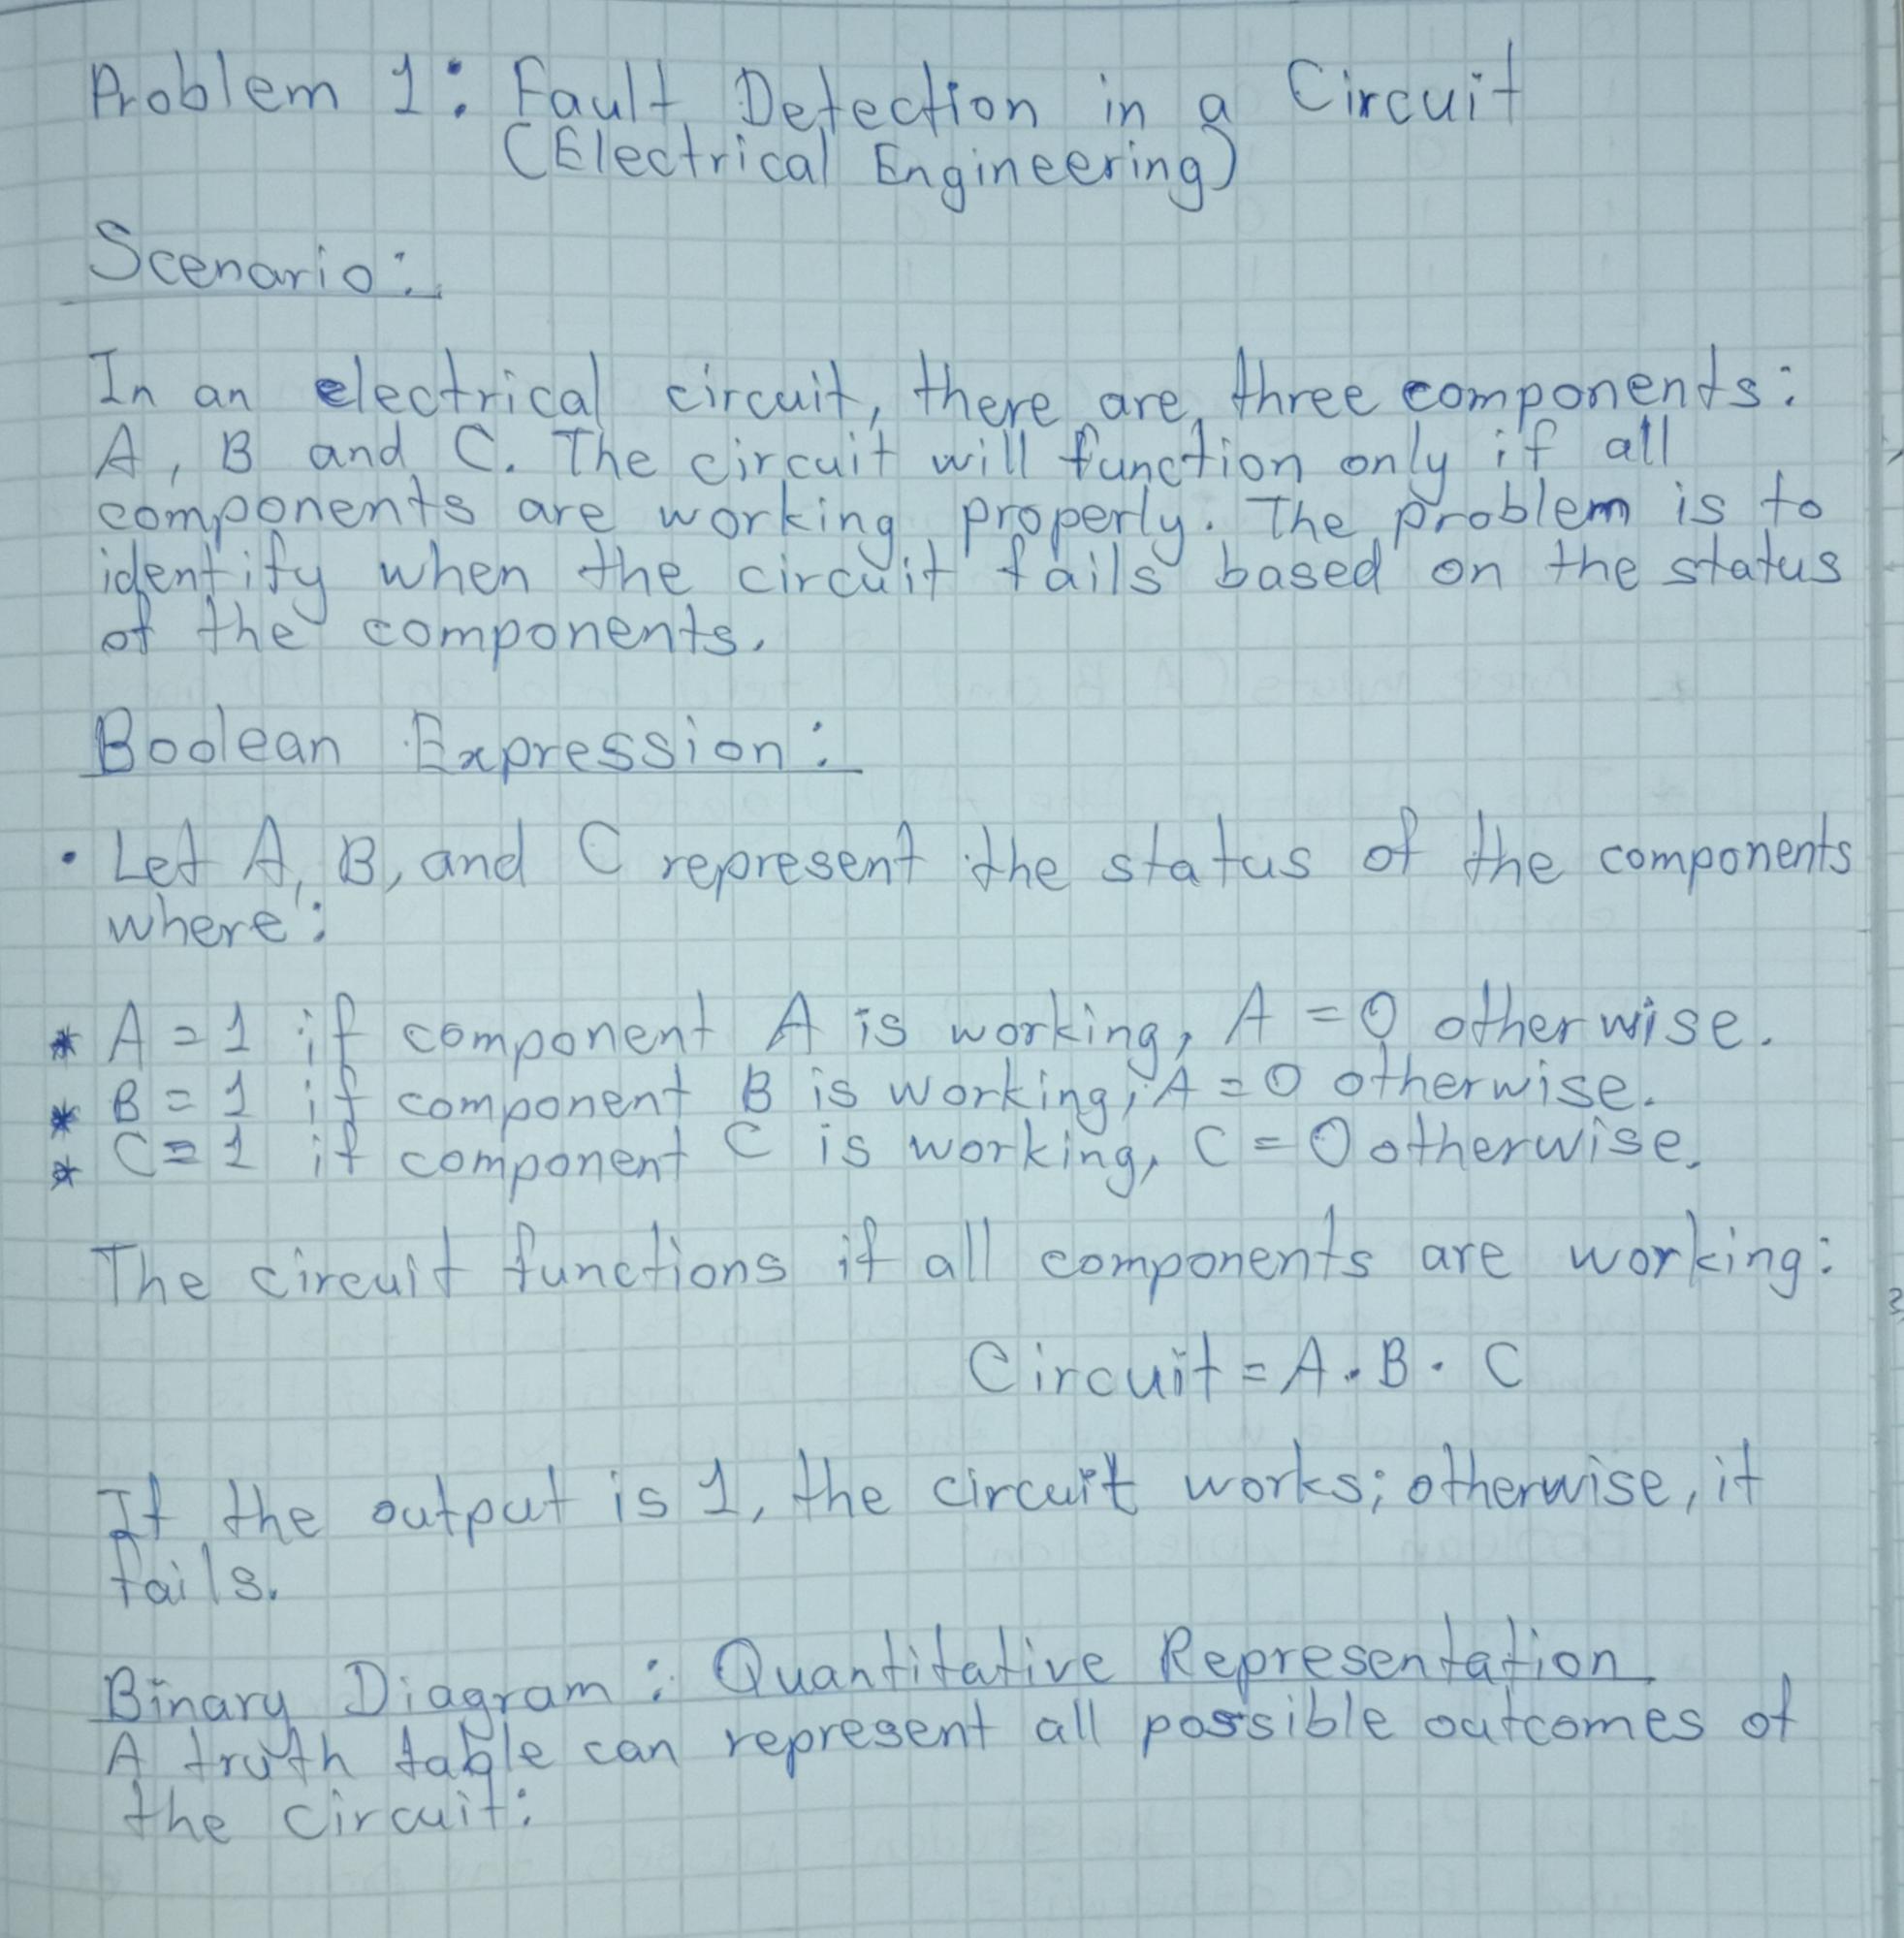 Problem 1: Fault Detection in a Circuit
(Electrical Engineering)
Scenario:
In an electrical circuit, there are three components:
A, B and C. The circuit will function only if all
components are working properly. The problem is to
identify when the circuit fails based on the status
of the components.
Boolean Expression:
• Let A, B, and C represent the status of the components
where:
* A = 1 if component A is working, A = 0 otherwise.
* B = 1 if component B is working, A = 0 otherwise.
* C = 1 if component C is working, C = 0 otherwise.
The circuit functions if all components are working:
Circuit = A . B . C
If the output is 1, the circuit works; otherwise, it
fails.
Binary Diagram: Quantitative Representation
A truth table can represent all possible outcomes of
the circuit: